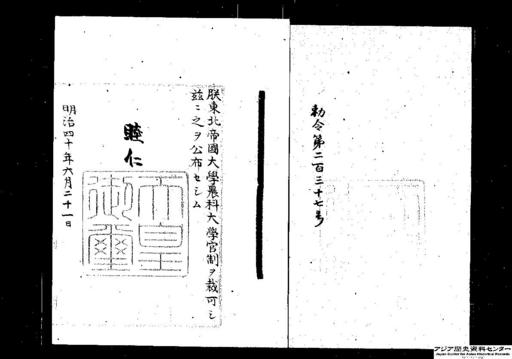 勅令第二百三十七号
朕東北帝國大學農科大學官制ヲ裁可シ
茲ニ之ヲ公布セシム
睦仁
天皇
御璽
明治四十年六月二十一日
アジア歴史資料センター
Japan Center for Asian Historical Records